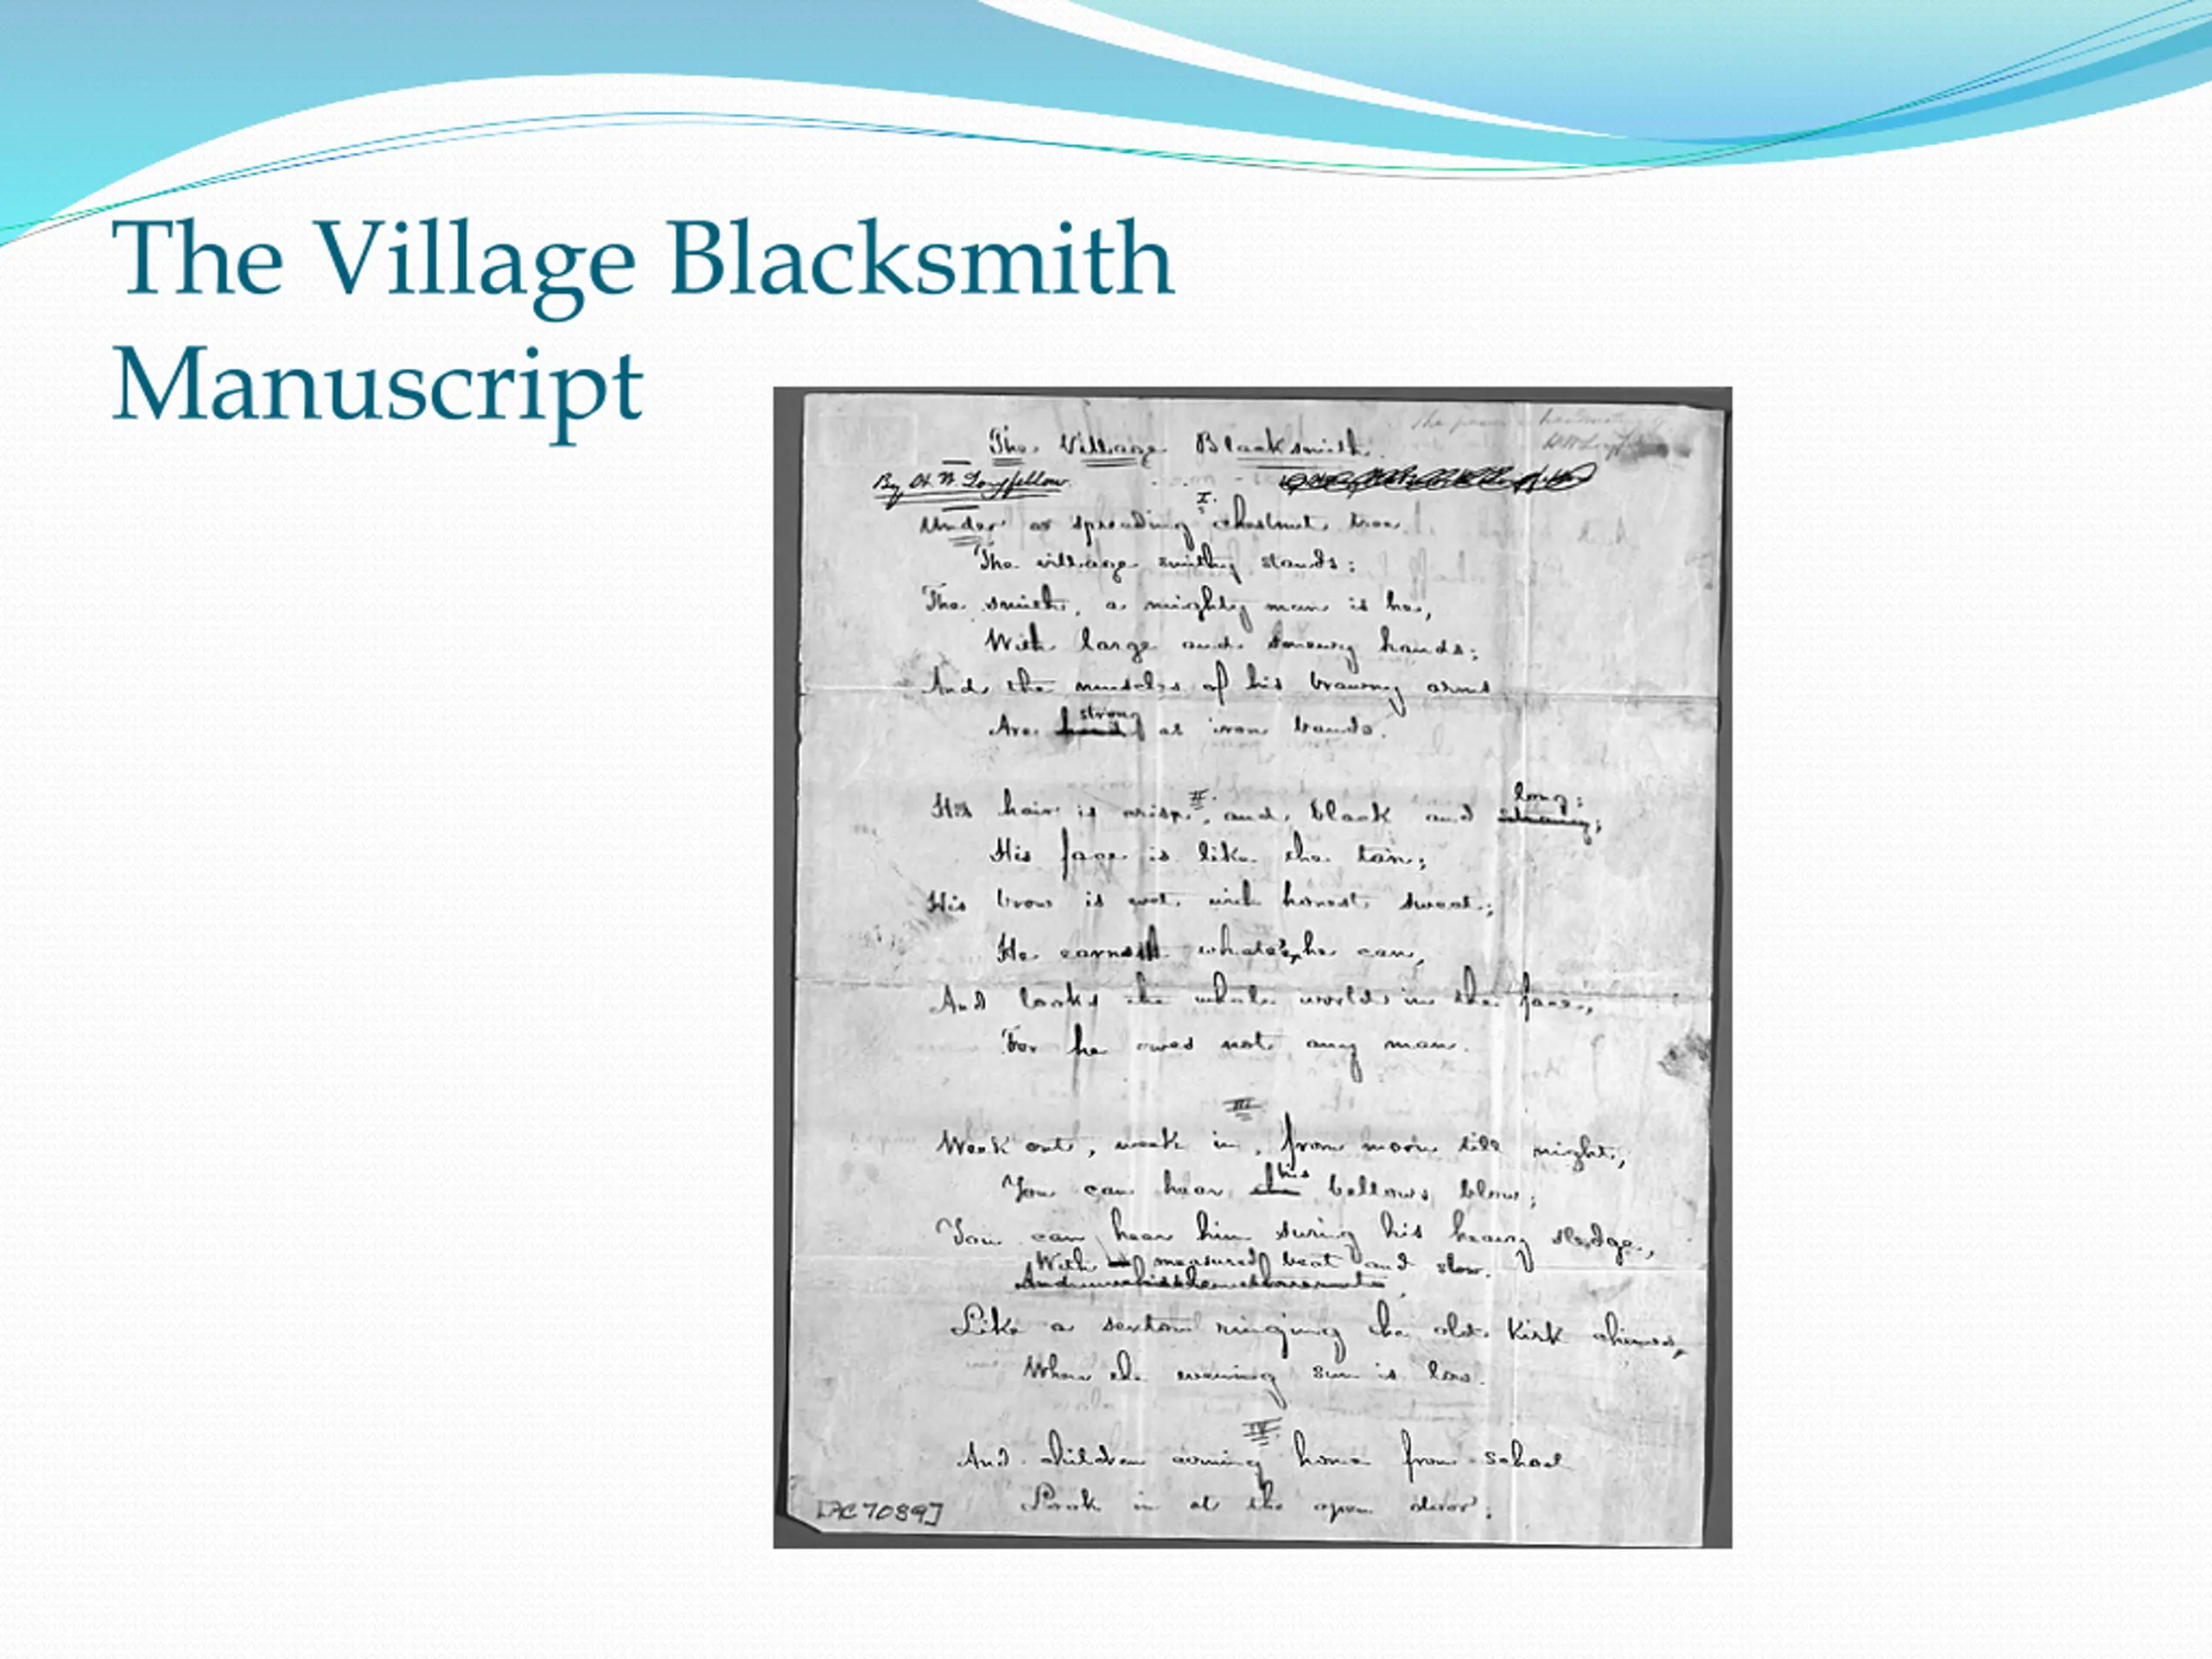 The Village Blacksmith
Manuscript
The Village Blacksmith.
By H. W. Longfellow.
I.
Under a spreading chestnut tree
The village smithy stands;
The smith, a mighty man is he,
With large and sinewy hands;
And the muscles of his brawny arms
strong
Are hard as iron bands.
II.
long;
His hair is crisp, and black and
His face is like the tan;
His brow is wet with honest sweat;
He earns whate'er he can,
And looks the whole world in the face,
For he owes not any man.
III.
Week out, week in, from morn till night,
his
You can hear the bellows blow;
You can hear him swing his heavy sledge,
With measured beat and slow.
Like a sexton ringing the old kirk chimes,
When the evening sun is low.
IV.
And children coming home from school
Look in at the open door;
[AC 7089]